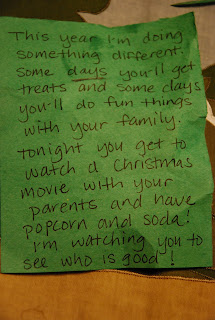 This year I'm doing
something different.
Some days you'll get
treats and some days
you'll do fun things
with your family.
Tonight you get to
watch a Christmas
movie with your
parents and have
popcorn and soda!
I'm watching you to
see who is good!